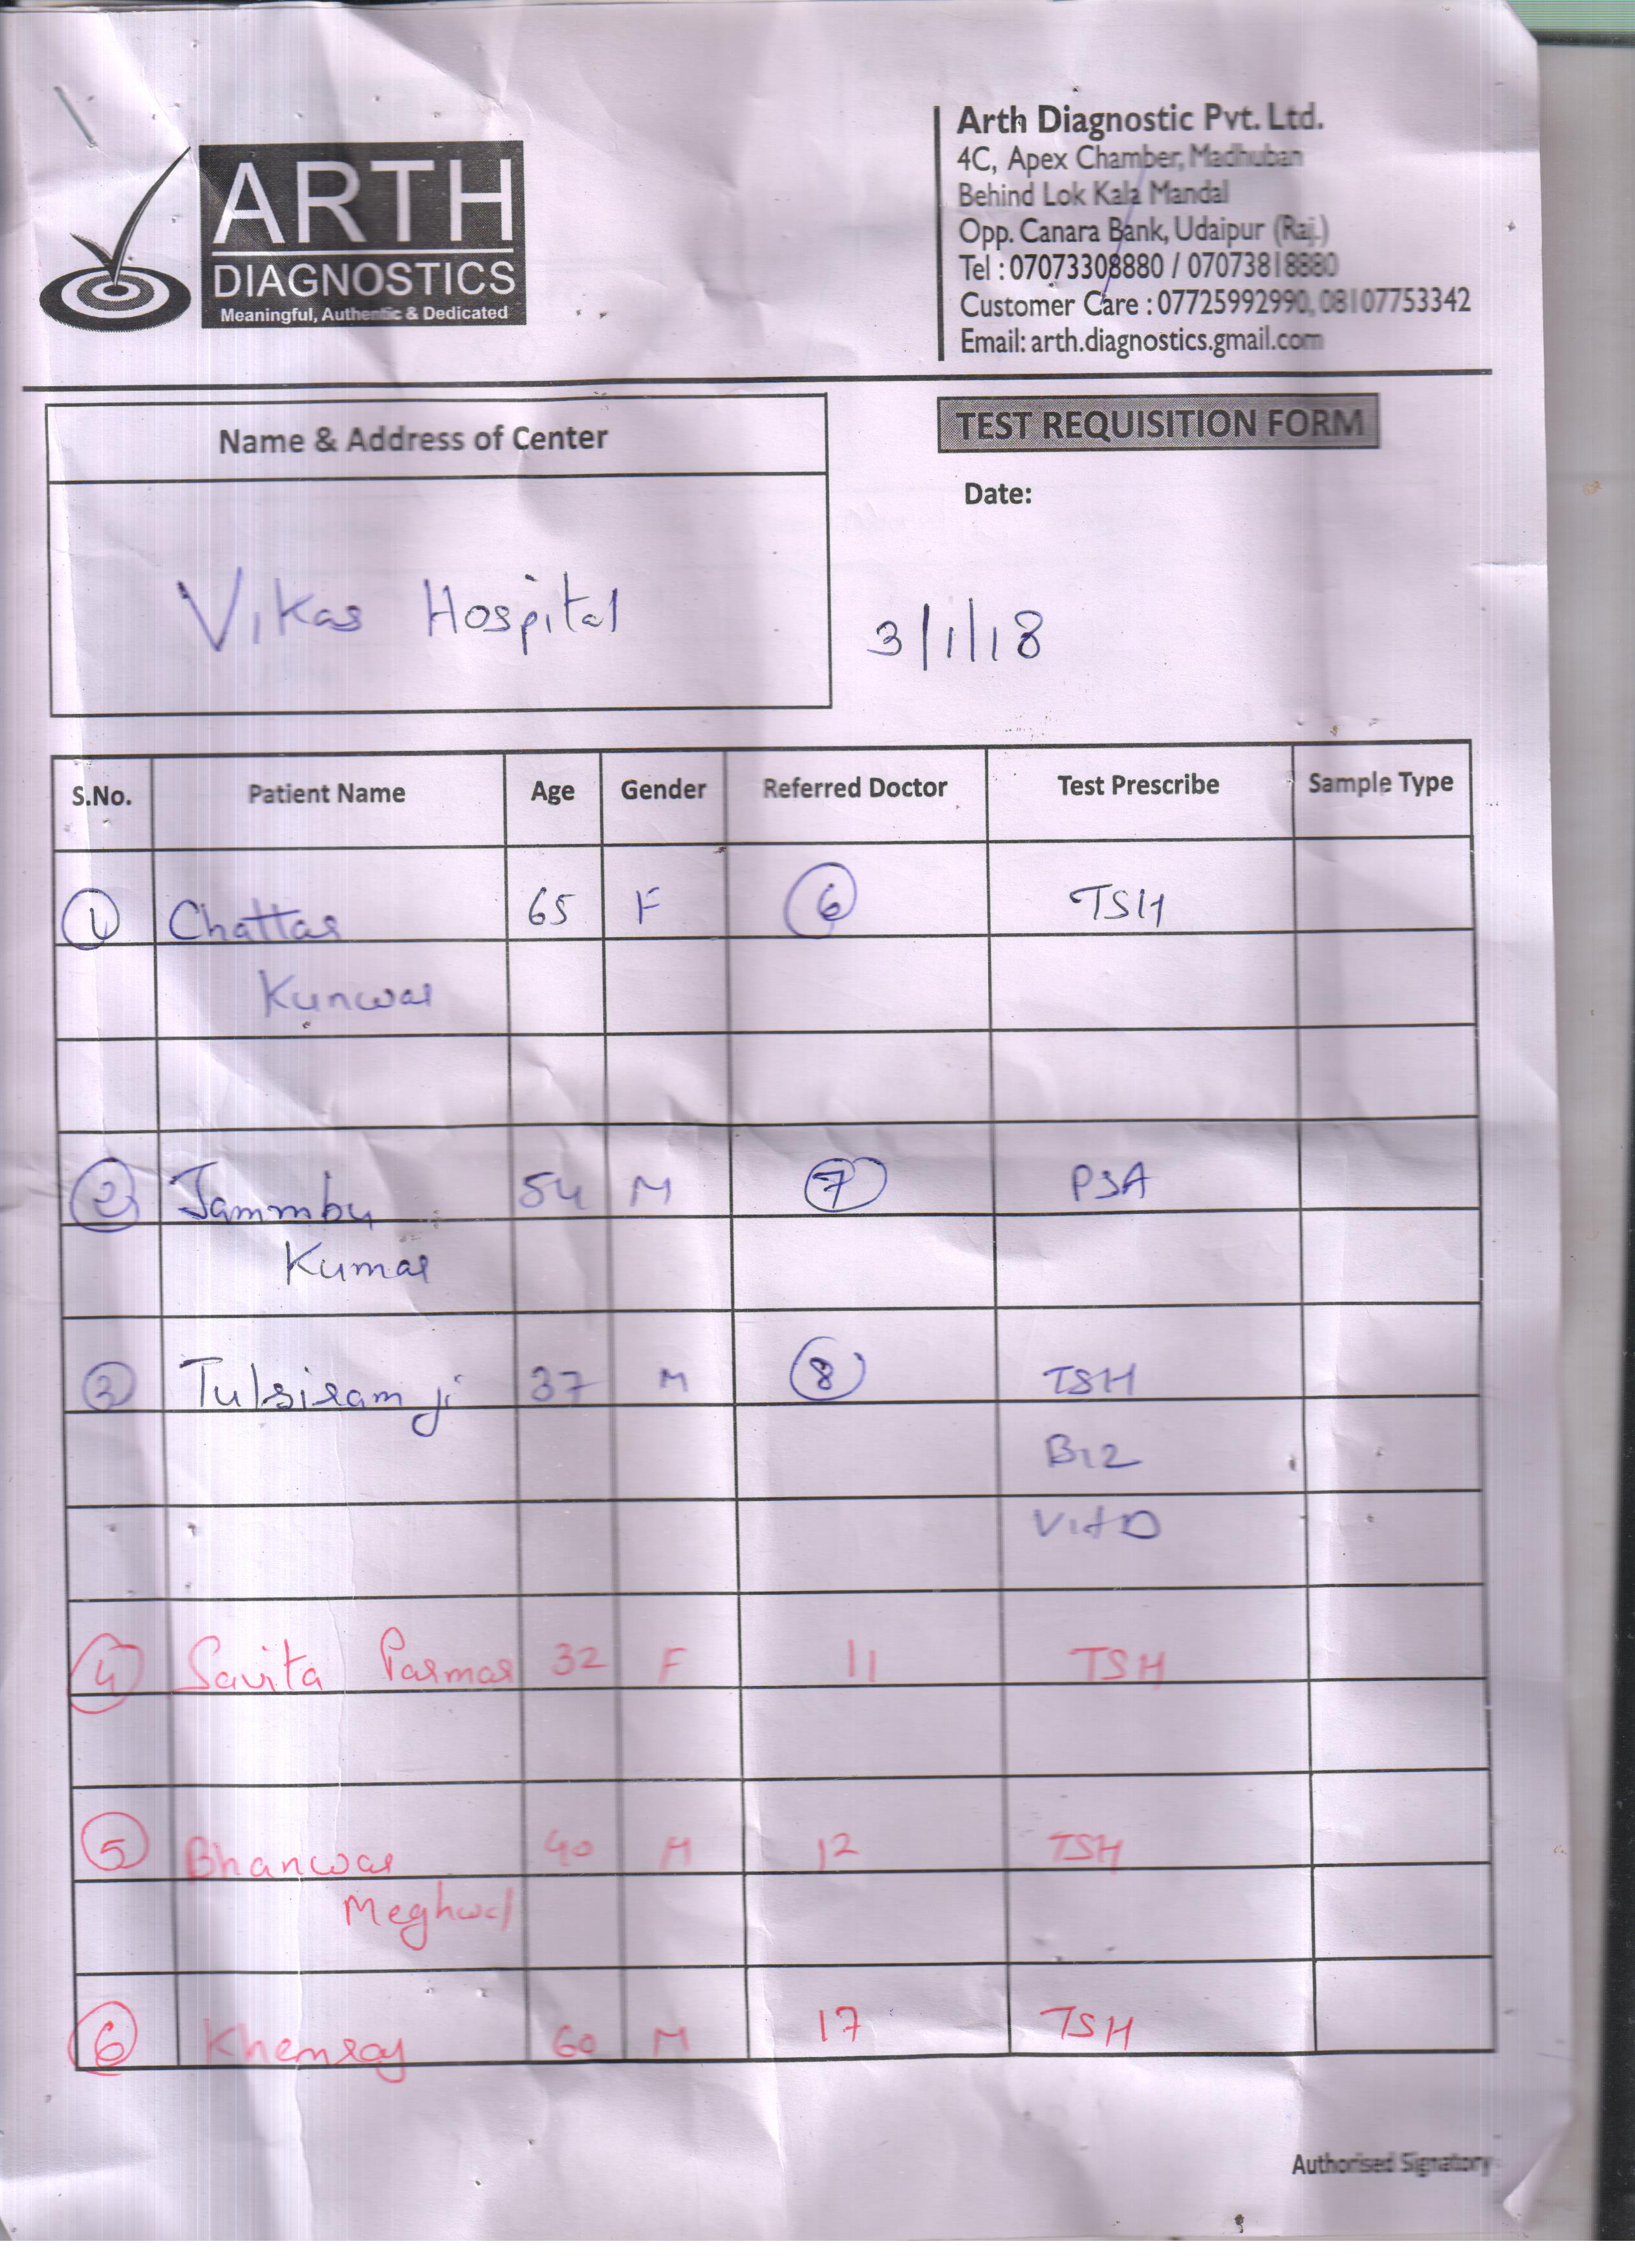 ARTH
DIAGNOSTICS
Meaningful, Authentic & Dedicated
Arth Diagnostic Pvt. Ltd.
4C, Apex Chamber, Madhuban
Behind Lok Kala Mandal
Opp. Canara Bank, Udaipur (Raj.)
Tel : 07073308880 / 07073818880
Customer Care : 07725992990, 08107753342
Email: arth.diagnostics.gmail.com
Name & Address of Center
TEST REQUISITION FORM
Date:
Vikas Hospital
3/1/18
S.No. Patient Name Age Gender Referred Doctor Test Prescribe Sample Type
1 Chattar 65 F 6 TSH
Kunwar
2 Jammbu 54 M 7 PSA
Kumar
3 Tulsiram ji 37 M 8 TSH
B12
Vit D
4 Savita Parmar 32 F 11 TSH
5 Bhanwar 40 M 12 TSH
Meghwal
6 Khemraj 60 M 17 TSH
Authorised Signatory